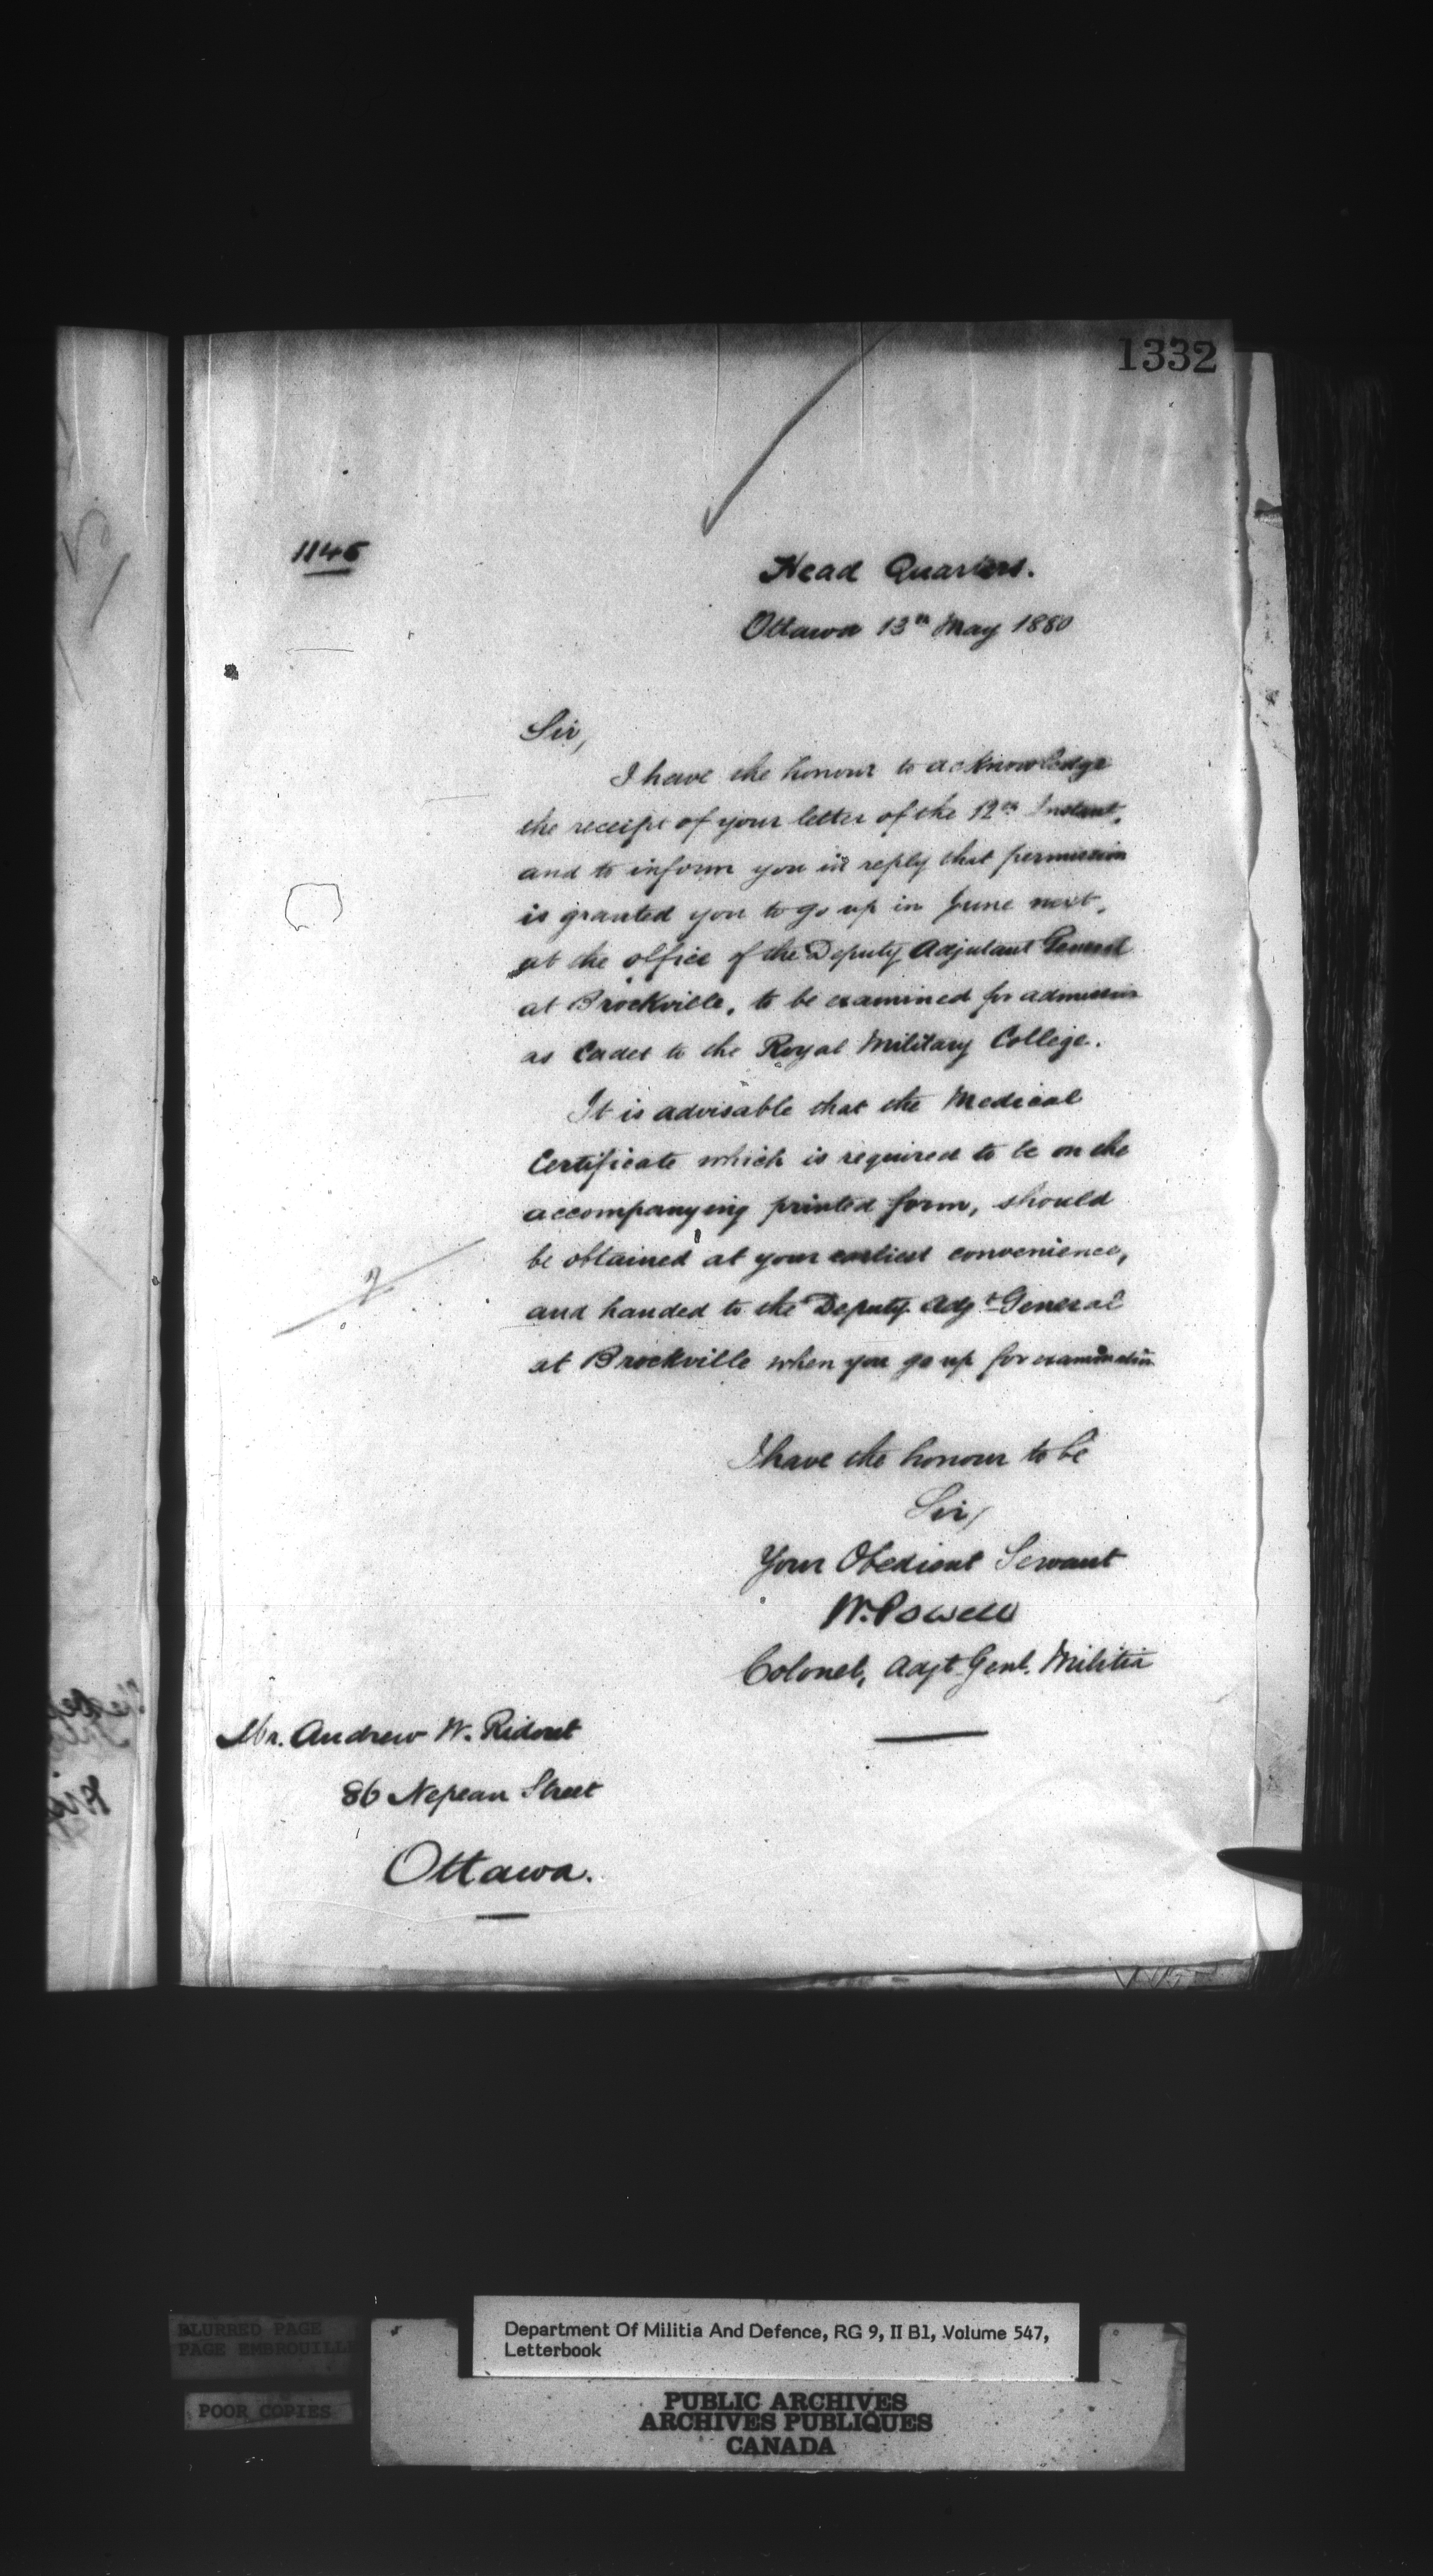 1332
1145
Head Quarters.
Ottawa 13th May 1880
Sir,
I have the honour to acknowledge
the receipt of your letter of the 12th Instant,
and to inform you in reply that permission
is granted you to go up in June next,
at the office of the Deputy Adjutant General
at Brockville, to be examined for admission
as Cadet to the Royal Military College.
It is advisable that the Medical
Certificate which is required to be on the
accompanying printed form, should
be obtained at your earliest convenience,
and handed to the Deputy Adjt General
at Brockville when you go up for examination
I have the honour to be
Sir,
Your Obedient Servant
W. Powell
Colonel, Adjt. Genl. Militia
Mr. Andrew W. Ridout
86 Nepean Street
Ottawa.
BLURRED PAGE
PAGE EMBROUILL
POOR COPIES
Department Of Militia And Defence, RG 9, II B1, Volume 547,
Letterbook
PUBLIC ARCHIVES
ARCHIVES PUBLIQUES
CANADA